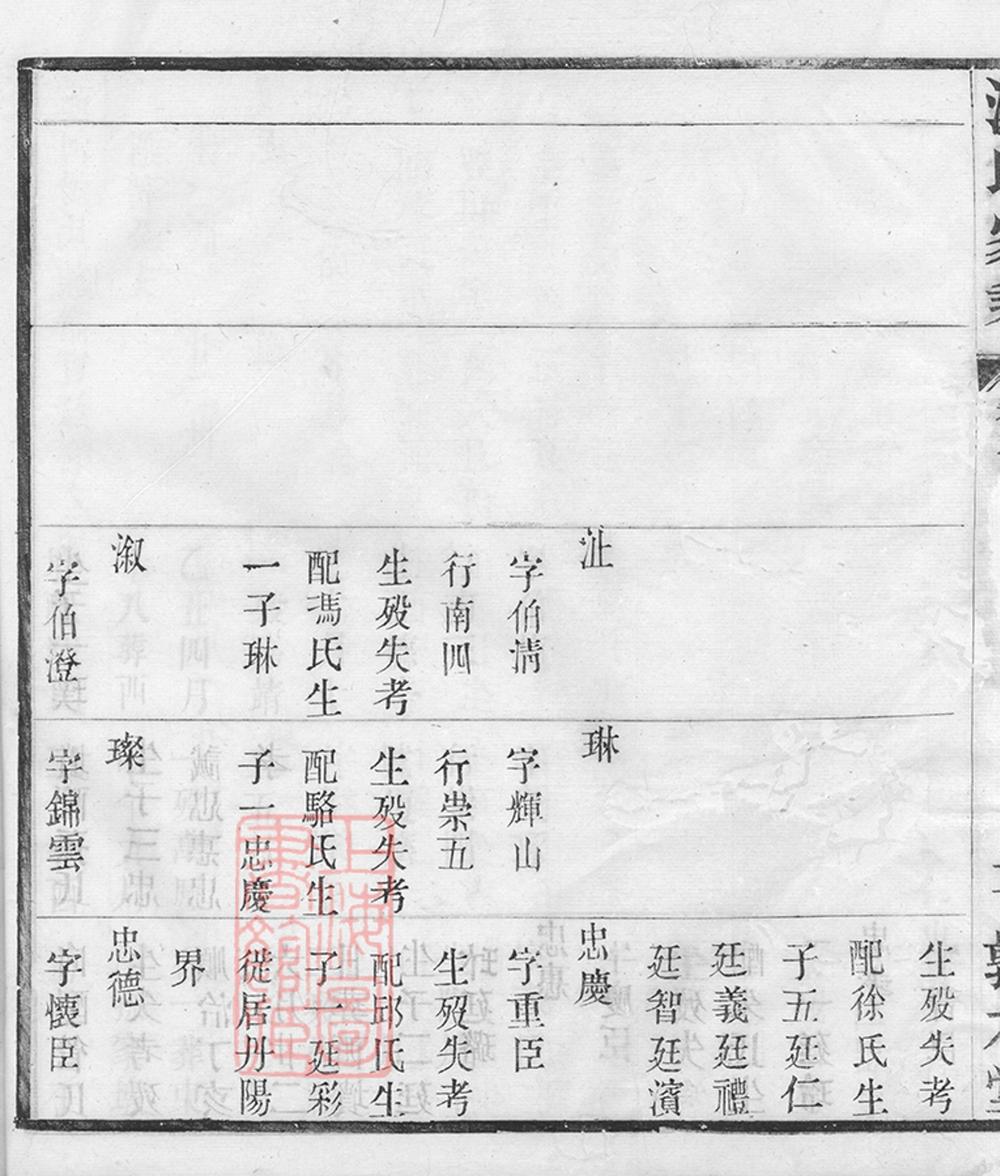 沚
字伯清
行南四
生殁失考
配馮氏生
一子琳
溆
字伯澄
琳
字輝山
行崇五
生殁失考
配駱氏生
子一忠慶
璨
字錦雲
生殁失考
配徐氏生
子五廷仁
廷義廷禮
廷智廷濱
忠慶
字重臣
生殁失考
配邱氏生
子一廷彩
徙居丹陽
界
忠德
字懷臣
上海圖
書館臧